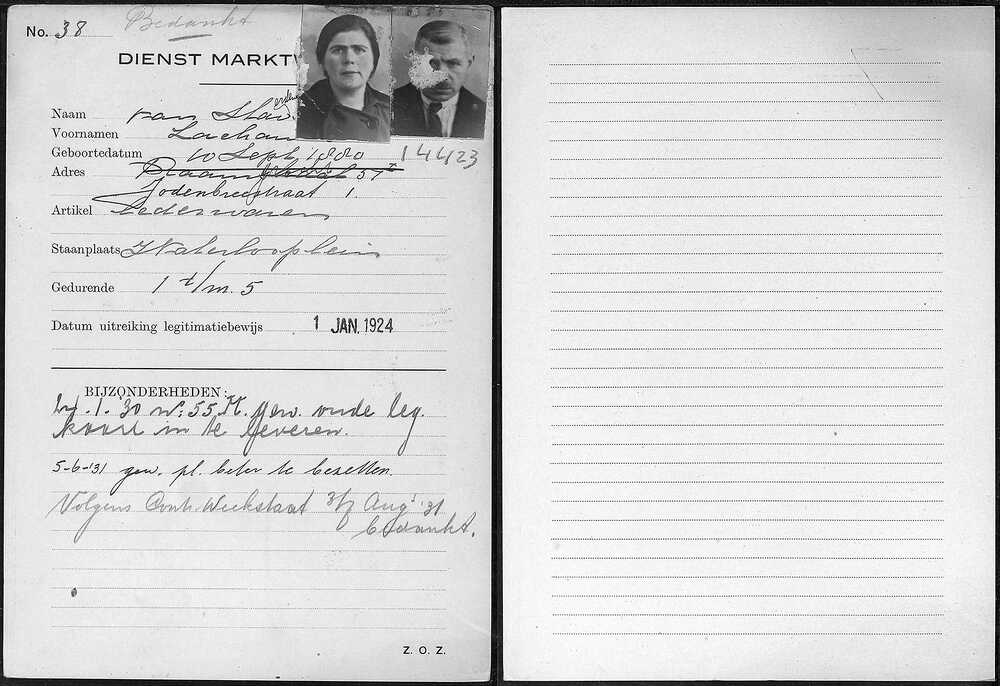 No. 38 Bedankt
DIENST MARKTW
Naam van Sta
Voornamen
Geboortedatum 10 Sept. 1880 14423
Adres 51
Jodenbreestraat 1.
Artikel Lederwaren
Staanplaats Waterlooplein
Gedurende 1 t/m. 5
Datum uitreiking legitimatiebewijs 1 JAN. 1924
BIJZONDERHEDEN:
.1.'30 gew. oude leg.
kaart in te leveren.
5-6-'31 gew. pl. beter te bezetten.
Volgens Contr. Weekstaat Aug. '31
bedankt.
Z. O. Z.